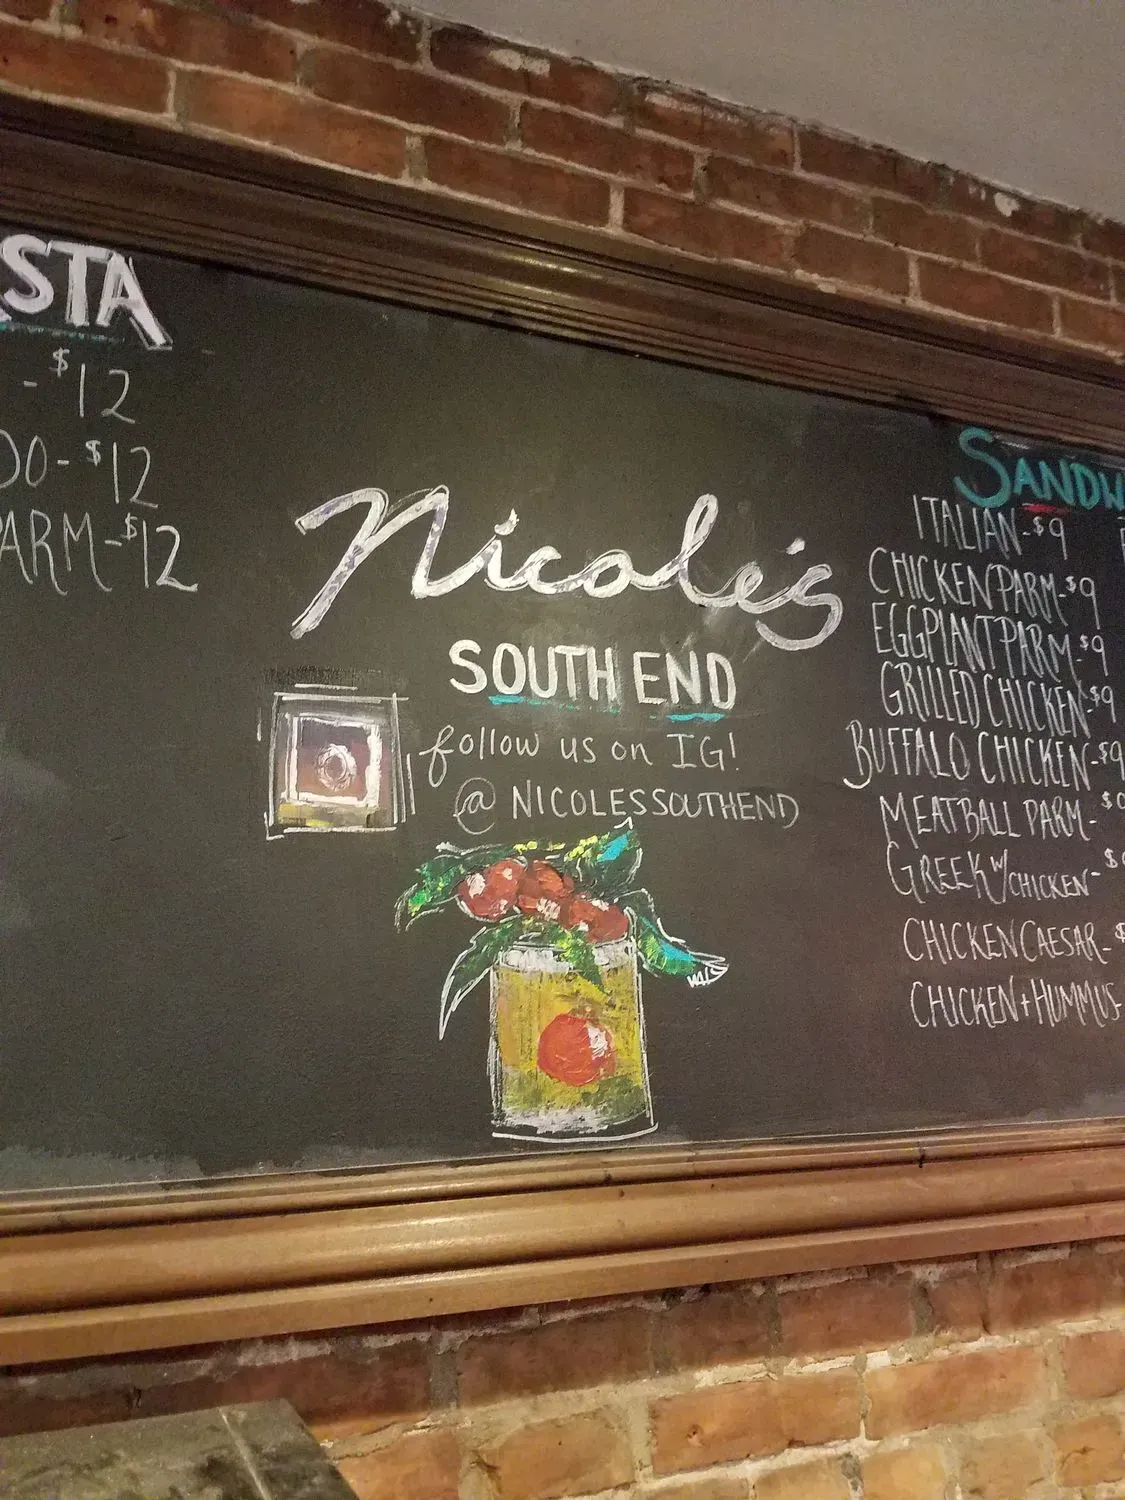 STA
- $12
DO - $12
ARM - $12
Nicole's
SOUTH END
follow us on IG!
@ NICOLESSOUTHEND
WALS
SANDW
ITALIAN - $9
CHICKEN PARM - $9
EGGPLANT PARM - $9
GRILLED CHICKEN - $9
BUFFALO CHICKEN - $9
MEATBALL PARM - $
GREEK w/ CHICKEN - $
CHICKEN CAESAR - $
CHICKEN + HUMMUS -